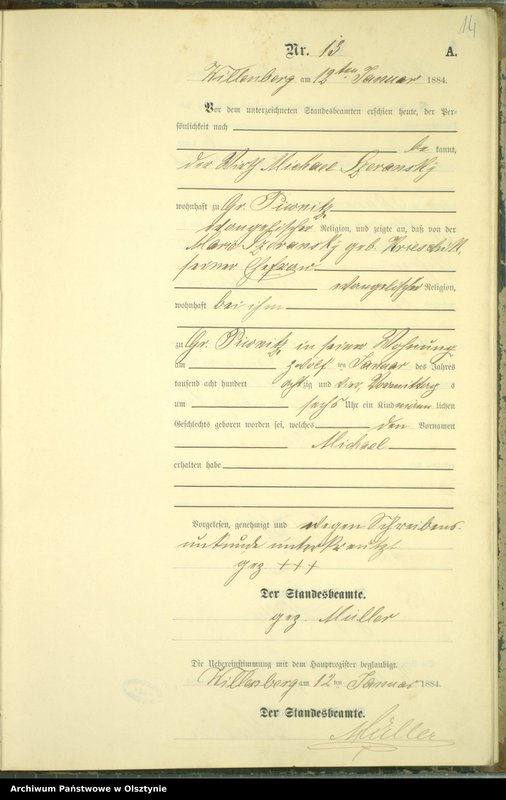 14
Nr. 13 A.
Willenberg am 12ten Januar 1884.
Vor dem unterzeichneten Standesbeamten erschien heute, der Per-
sönlichkeit nach
be kannt,
der Wirth Michael
wohnhaft zu Gr. Piwnitz
evangelischer Religion, und zeigte an, daß von der
Marie geb.
seiner Ehefrau
evangelischer Religion,
wohnhaft bei ihm
zu Gr. Piwnitz in seiner Wohnung
am zwölf ten Januar des Jahres
tausend acht hundert achtzig und vier Vormittag s
um sechs Uhr ein Kind männ lichen
Geschlechts geboren worden sei, welches den Vornamen
Michael
erhalten habe
Vorgelesen, genehmigt und wegen Schreibens-
unkunde unterkreuzt
gez +++
Der Standesbeamte.
gez. Müller
Die Uebereinstimmung mit dem Hauptregister beglaubigt.
Willenberg am 12ten Januar 1884.
Der Standesbeamte.
Müller
Archiwum Państwowe w Olsztynie